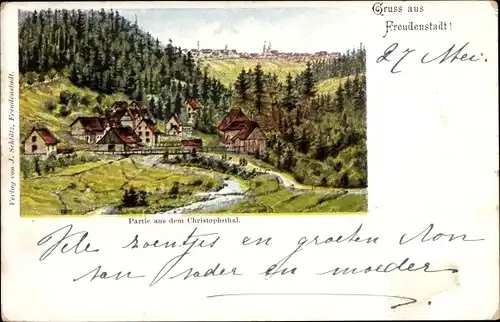 Gruss aus
Freudenstadt!
27 Mei.
Verlag von J. Schlätz, Freudenstadt.
Partie aus dem Christophsthal.
Vele zoentjes en groeten
van vader en moeder.